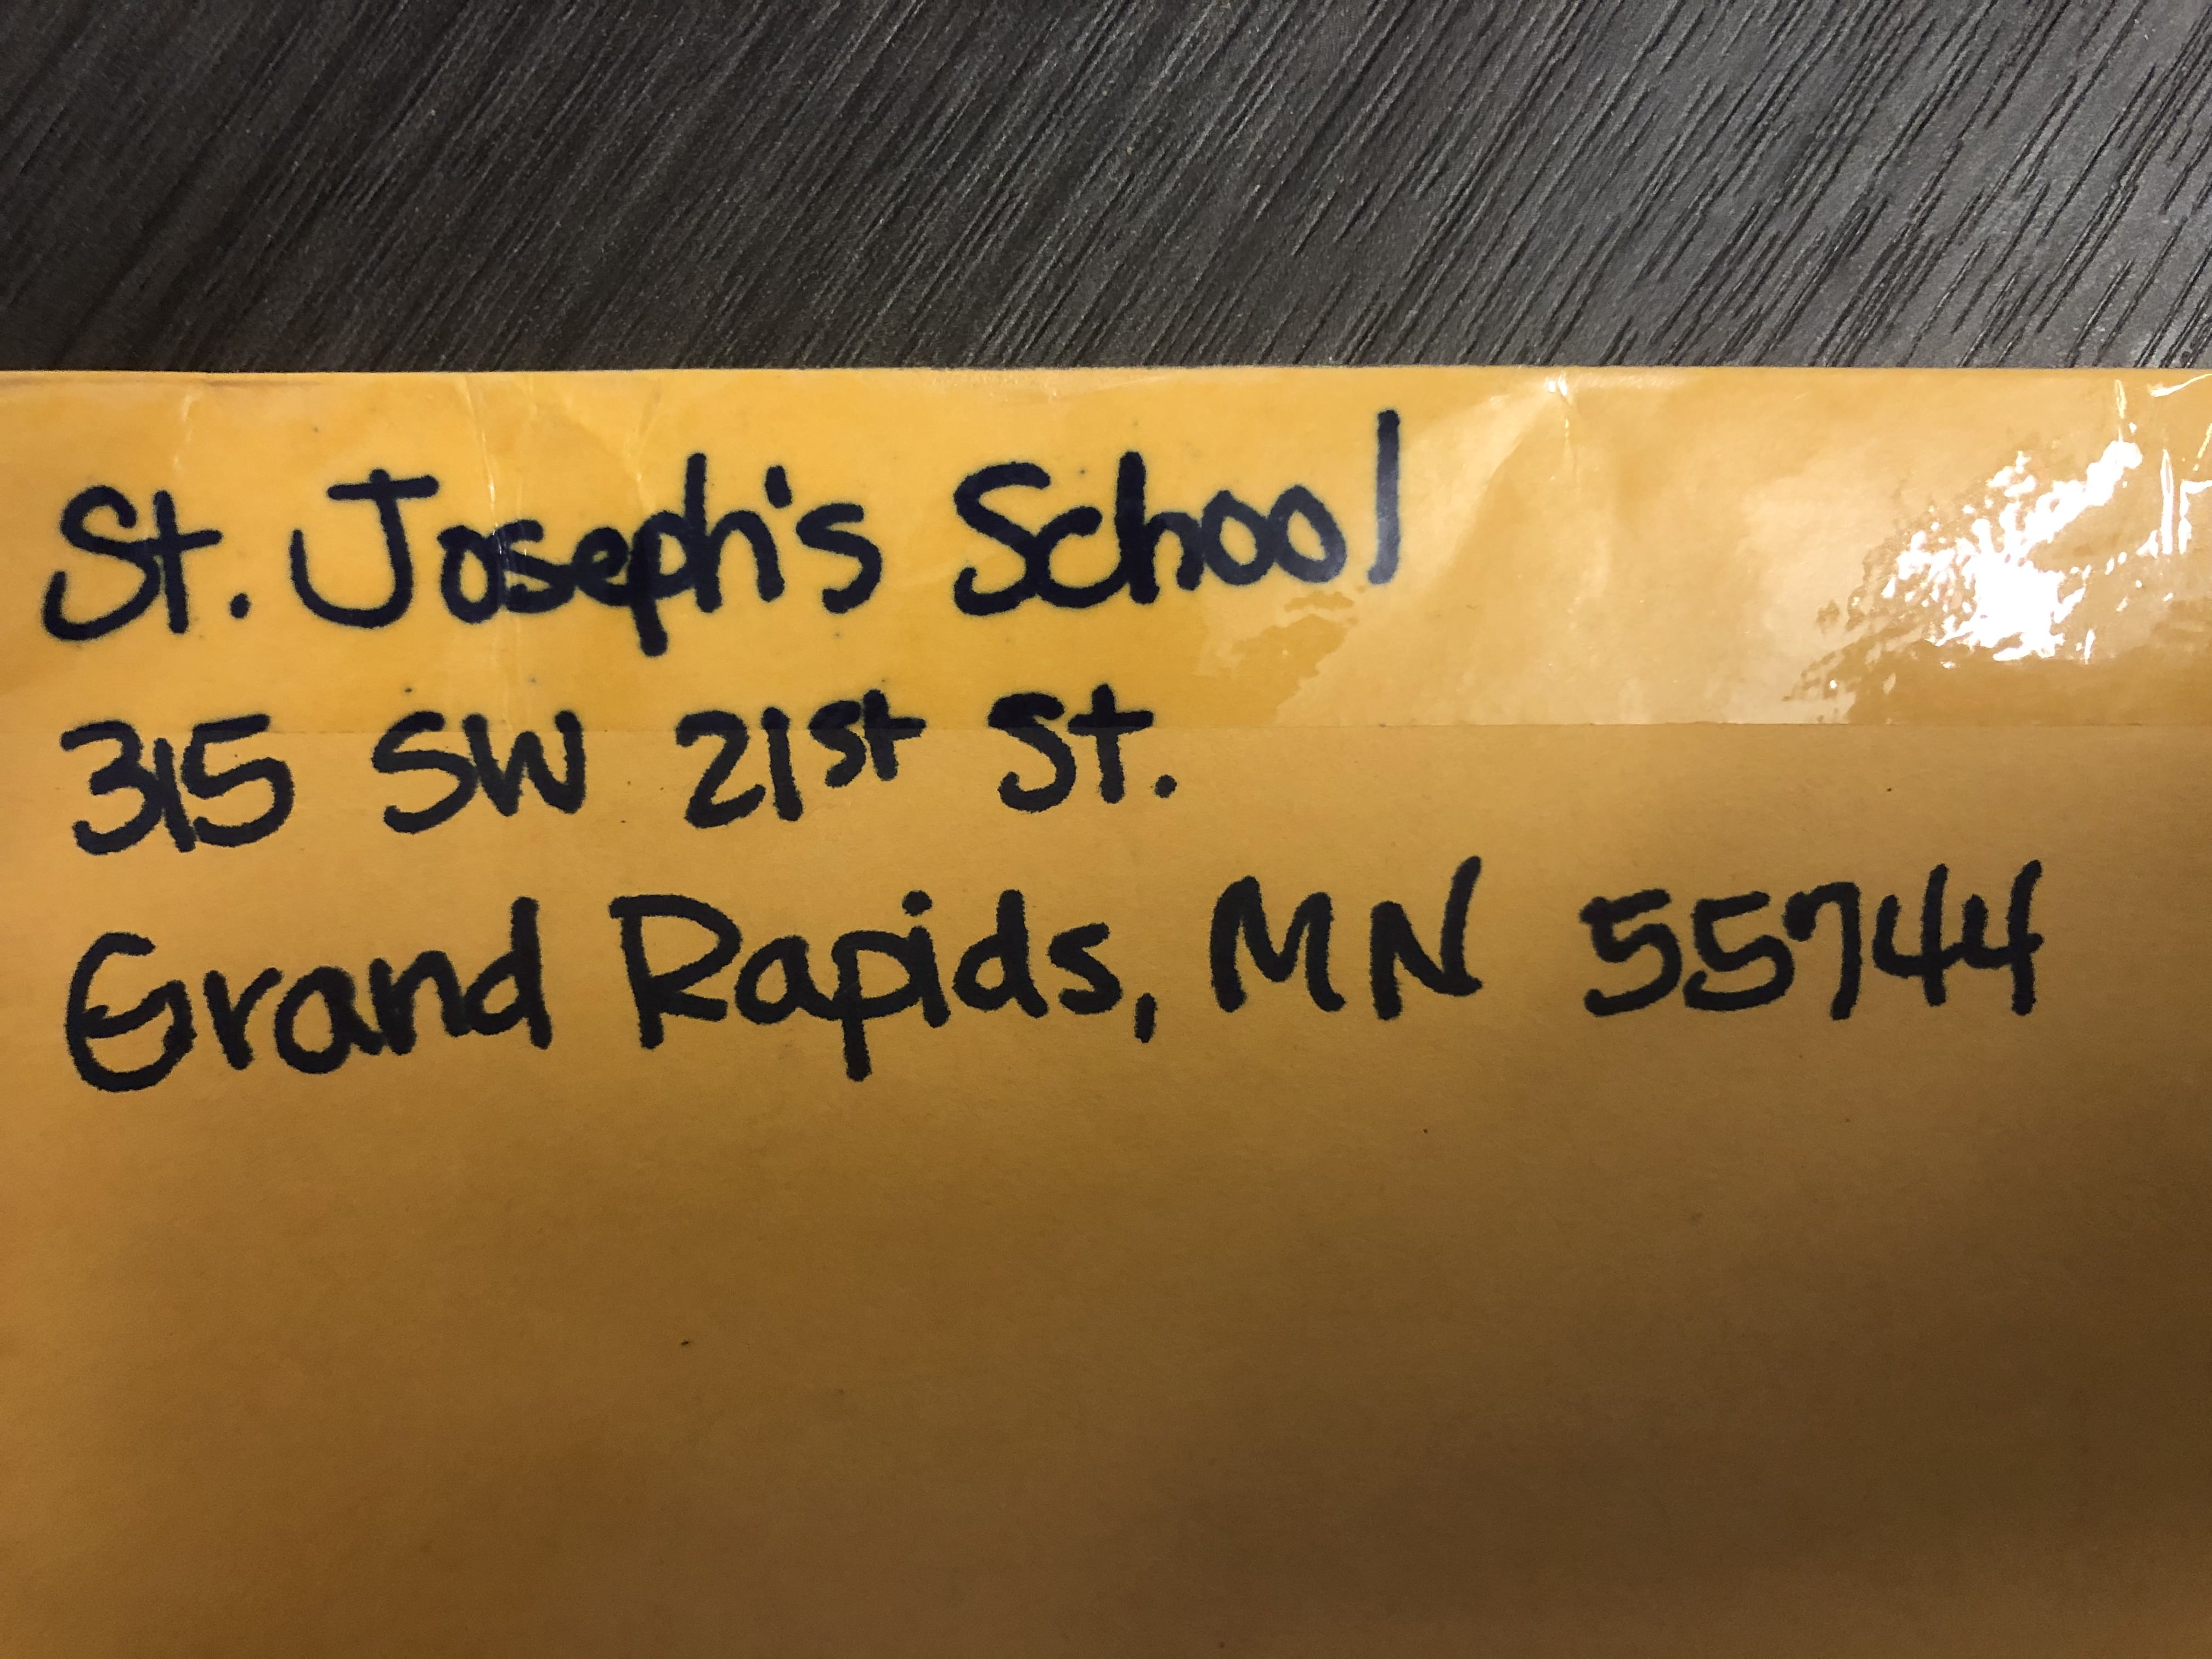 St. Joseph's School
315 SW 21st St.
Grand Rapids, MN 55744